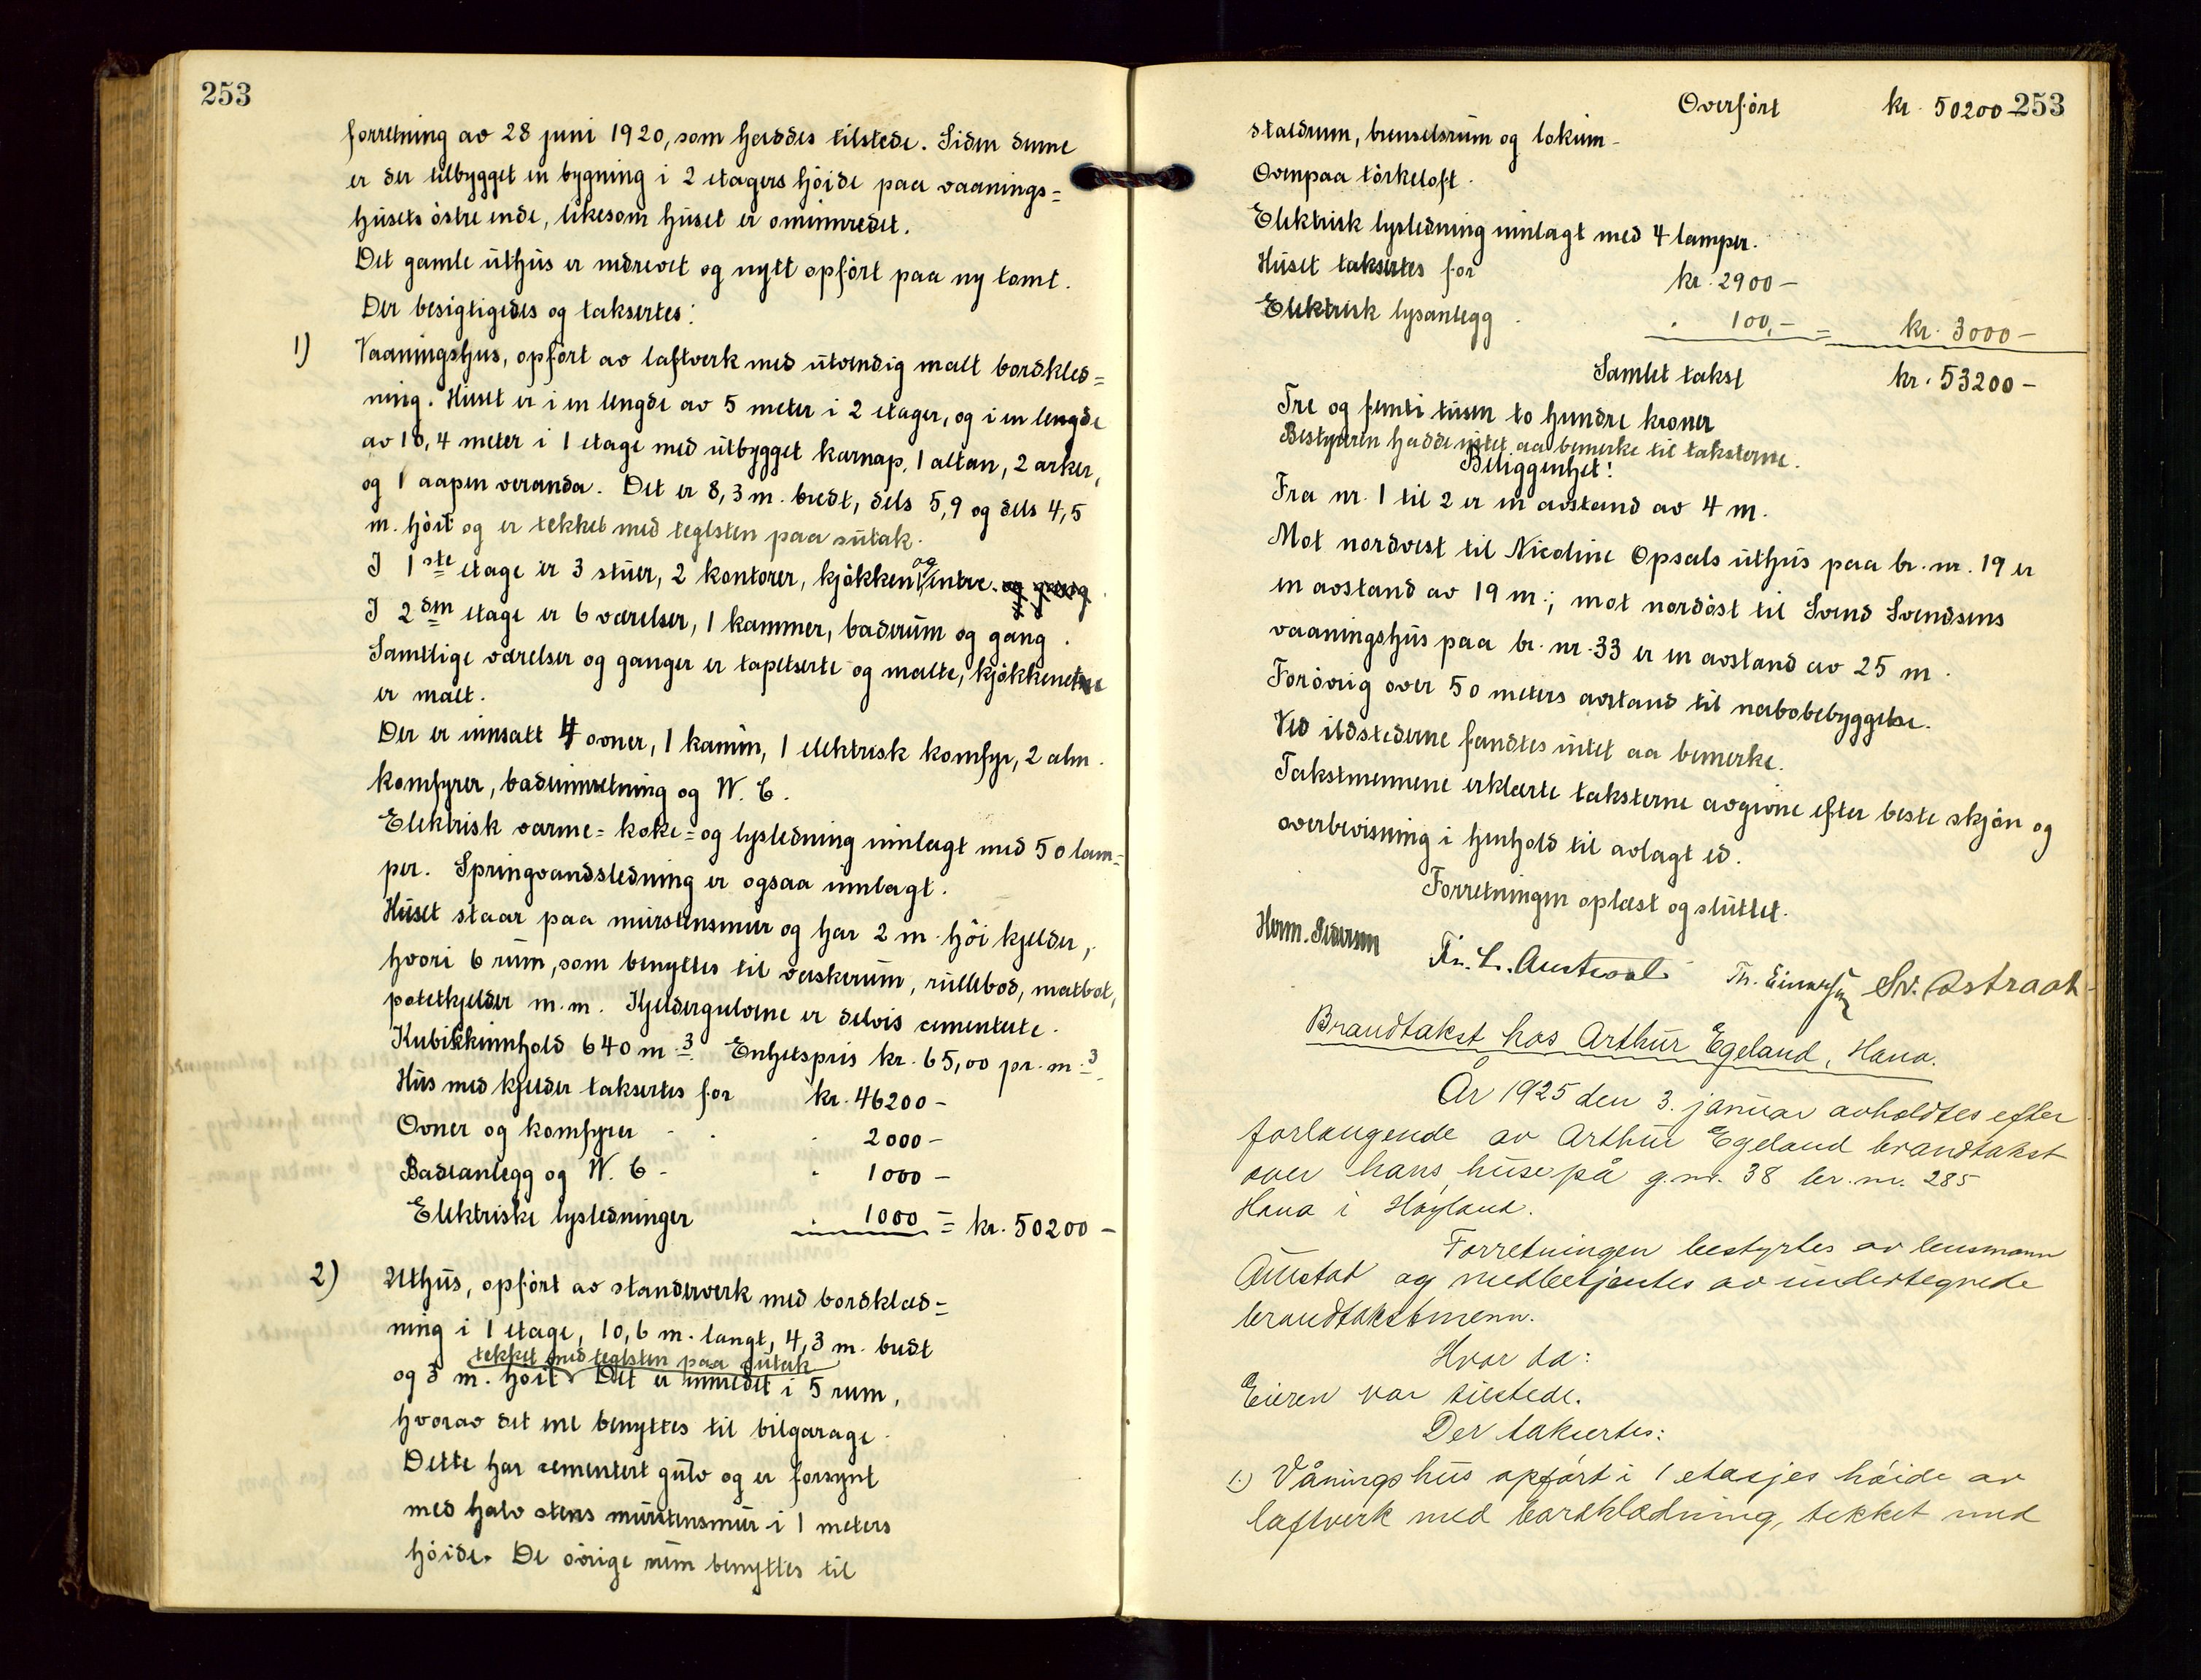 253
forretning av 28 juni 1920, som haddes tilstede. Siden denne
er der tilbygget en bygning i 2 etagers höide paa vaanings=
husets östre ende, likesom huset er ominnredet.
Det gamle uthus er nedrevet og nytt opfört paa ny tomt.
Der besigtigedes og taksertes:
1) Vaaningshus, opfört av laftverk med utvendig malt bordkled=
ning. Huset er i en lengde av 5 meter i 2 etager, og i en lengde
av 10,4 meter i 1 etage med utbygget karnap, 1 altan, 2 arker,
og 1 aapen veranda. Det er 8,3 m. bredt, dels 5,9 og dels 4,5
m. höit og er tekket med teglsten paa sutak.
I 1ste etage er 3 stuer, 2 kontorer, kjökken og entre. og gang
I 2den etage er 6 værelser, 1 kammer, baderum og gang.
Samtlige værelser og ganger er tapetserte og malte, kjökkenet
er malt.
Der er innsatt 4 ovner, 1 kamin, 1 elektrisk komfyr, 2 alm.
komfyrer, badeinnretning og W. C.
Elektrisk varme= koke= og lysledning innlagt med 50 lam=
per. Springvandsledning er ogsaa innlagt.
Huset staar paa murstensmur og har 2 m. höi kjelder,
hvori 6 rum, som benyttes til vaskerum, rullebod, matbod,
potetkjelder m.m. Kjeldergulvene er delvis cementerte.
Kubikkinnhold 640 m.3 Enhetspris kr. 65,00 pr. m.3
Hus med kjelder taksertes for kr. 46200 -
Ovner og komfyrer - . . 2000 -
Badeanlegg og W. C - . 1000 -
Elektriske lysledninger . 1000 - = kr. 50200 -
2) Uthus, opfört av standerverk med bordklæd=
ning i 1 etage, 10,6 m. langt, 4,3 m. bredt
tekket med teglsten paa sutak
og 3 m. höit. Det er innredet i 5 rum,
hvorav det ene benyttes til bilgarage.
Dette har cementert gulv og er forsynt
med halv stens murstensmur i 1 meters
höide. De övrige rum benyttes til
Overfört kr. 50200 - 253
staldrum, brenselsrum og lokum -
Ovenpaa törkeloft.
Elektrisk lysledning innlagt med 4 lamper.
Huset taksertes for kr. 2900 -
Elektrisk lysanlegg . . 100,- = kr. 3000 -
Samlet takst kr. 53200 -
Tre og femti tusen to hundre kroner
Bestyreren hadde intet aa bemerke til taksterne.
Beliggenhet!
Fra nr. 1 til 2 er en avstand av 4 m.
Mot nordvest til Nicoline Opsals uthus paa br. nr. 19 er
en avstand av 19 m.; mot nordöst til Svend Svendsens
vaaningshus paa br. nr. 33 er en avstand av 25 m.
Forövrig over 50 meters avstand til nabobebyggelse.
Ved ildstederne fandtes intet aa bemerke.
Takstmennene erklærte taksterne avgivne efter beste skjön og
overbevisning i henhold til avlagt ed.
Forretningen oplæst og sluttet.
Herm. Pedersen Th. Einarsen Sv. Østraat
Brandtakst hos Arthur Egeland, Hana.
År 1925 den 3. januar avholdtes efter
forlangende av Arthur Egeland brandtakst
over hans huse på g.nr. 38 br. nr. 285
Hana i Høyland.
Forretningen bestyrtes av lensmann
Austad og medbetjentes av undertegnede
brandtakstmenn.
Hvor da:
Eieren var tilstede.
Der taksertes:
1.) Våningshus opført i 1 etasjes høide av
laftverk med bordklædning, tekket med